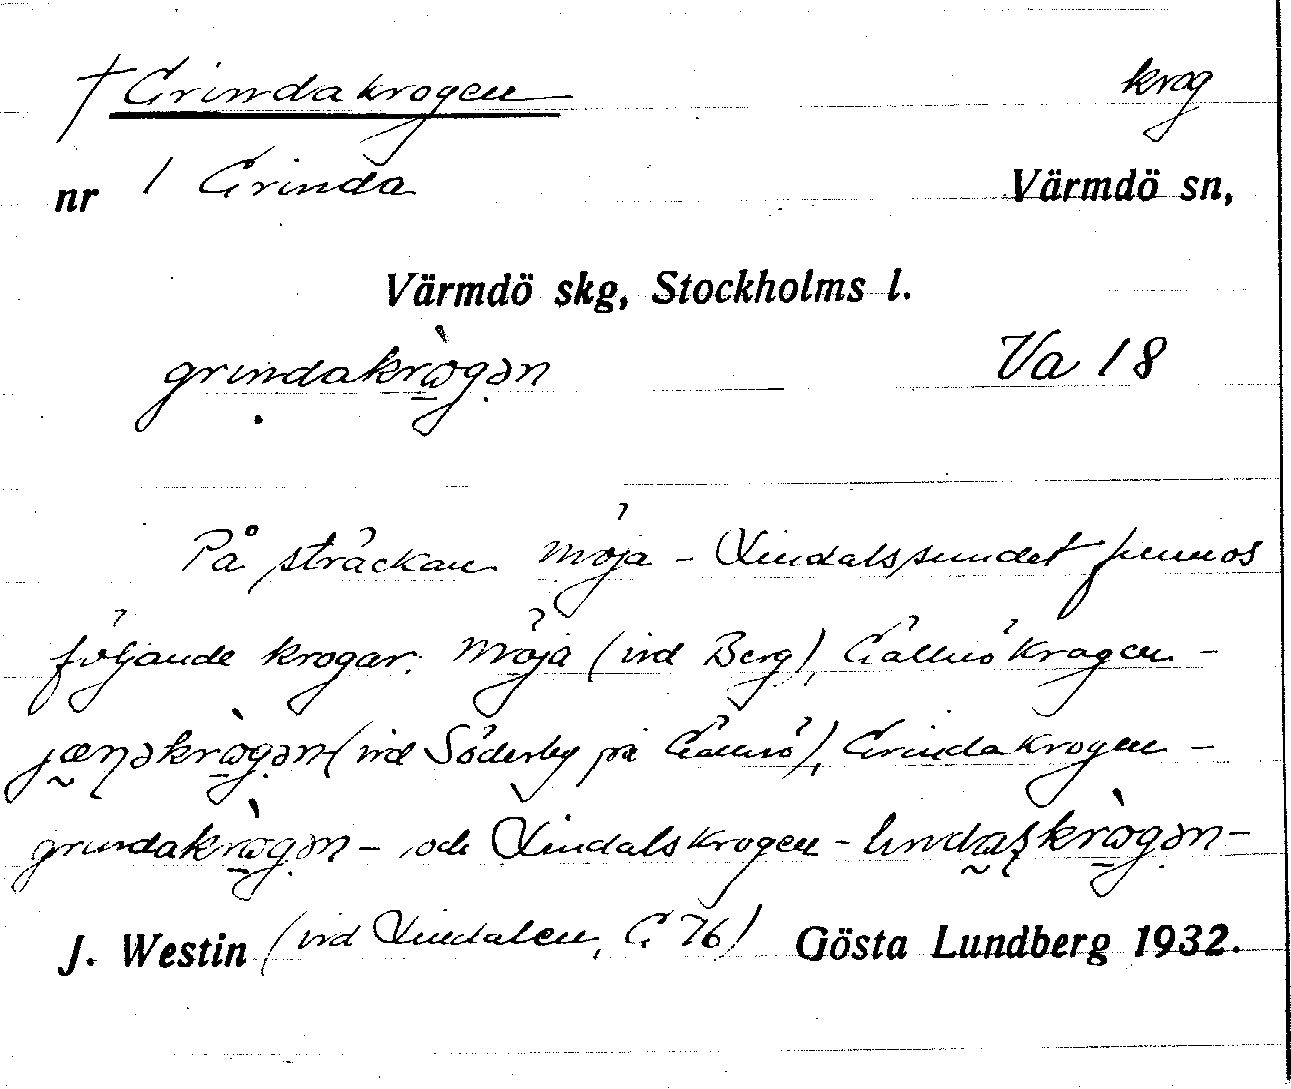 † Grindakrogen krog
nr 1 Grinda Värmdö sn,
Värmdö skg, Stockholms l.
grindakrògən Va 18
På sträckan Möja - Lindalssundet funnos
följande krogar: Möja (vid Berg), Gällnökrogen -
krògən (vid Söderby på Gällnö), Grindakrogen -
grindakrògən - och Lindalskrogen - krògən -
J. Westin (vid Lindalen, G 76) Gösta Lundberg 1932.